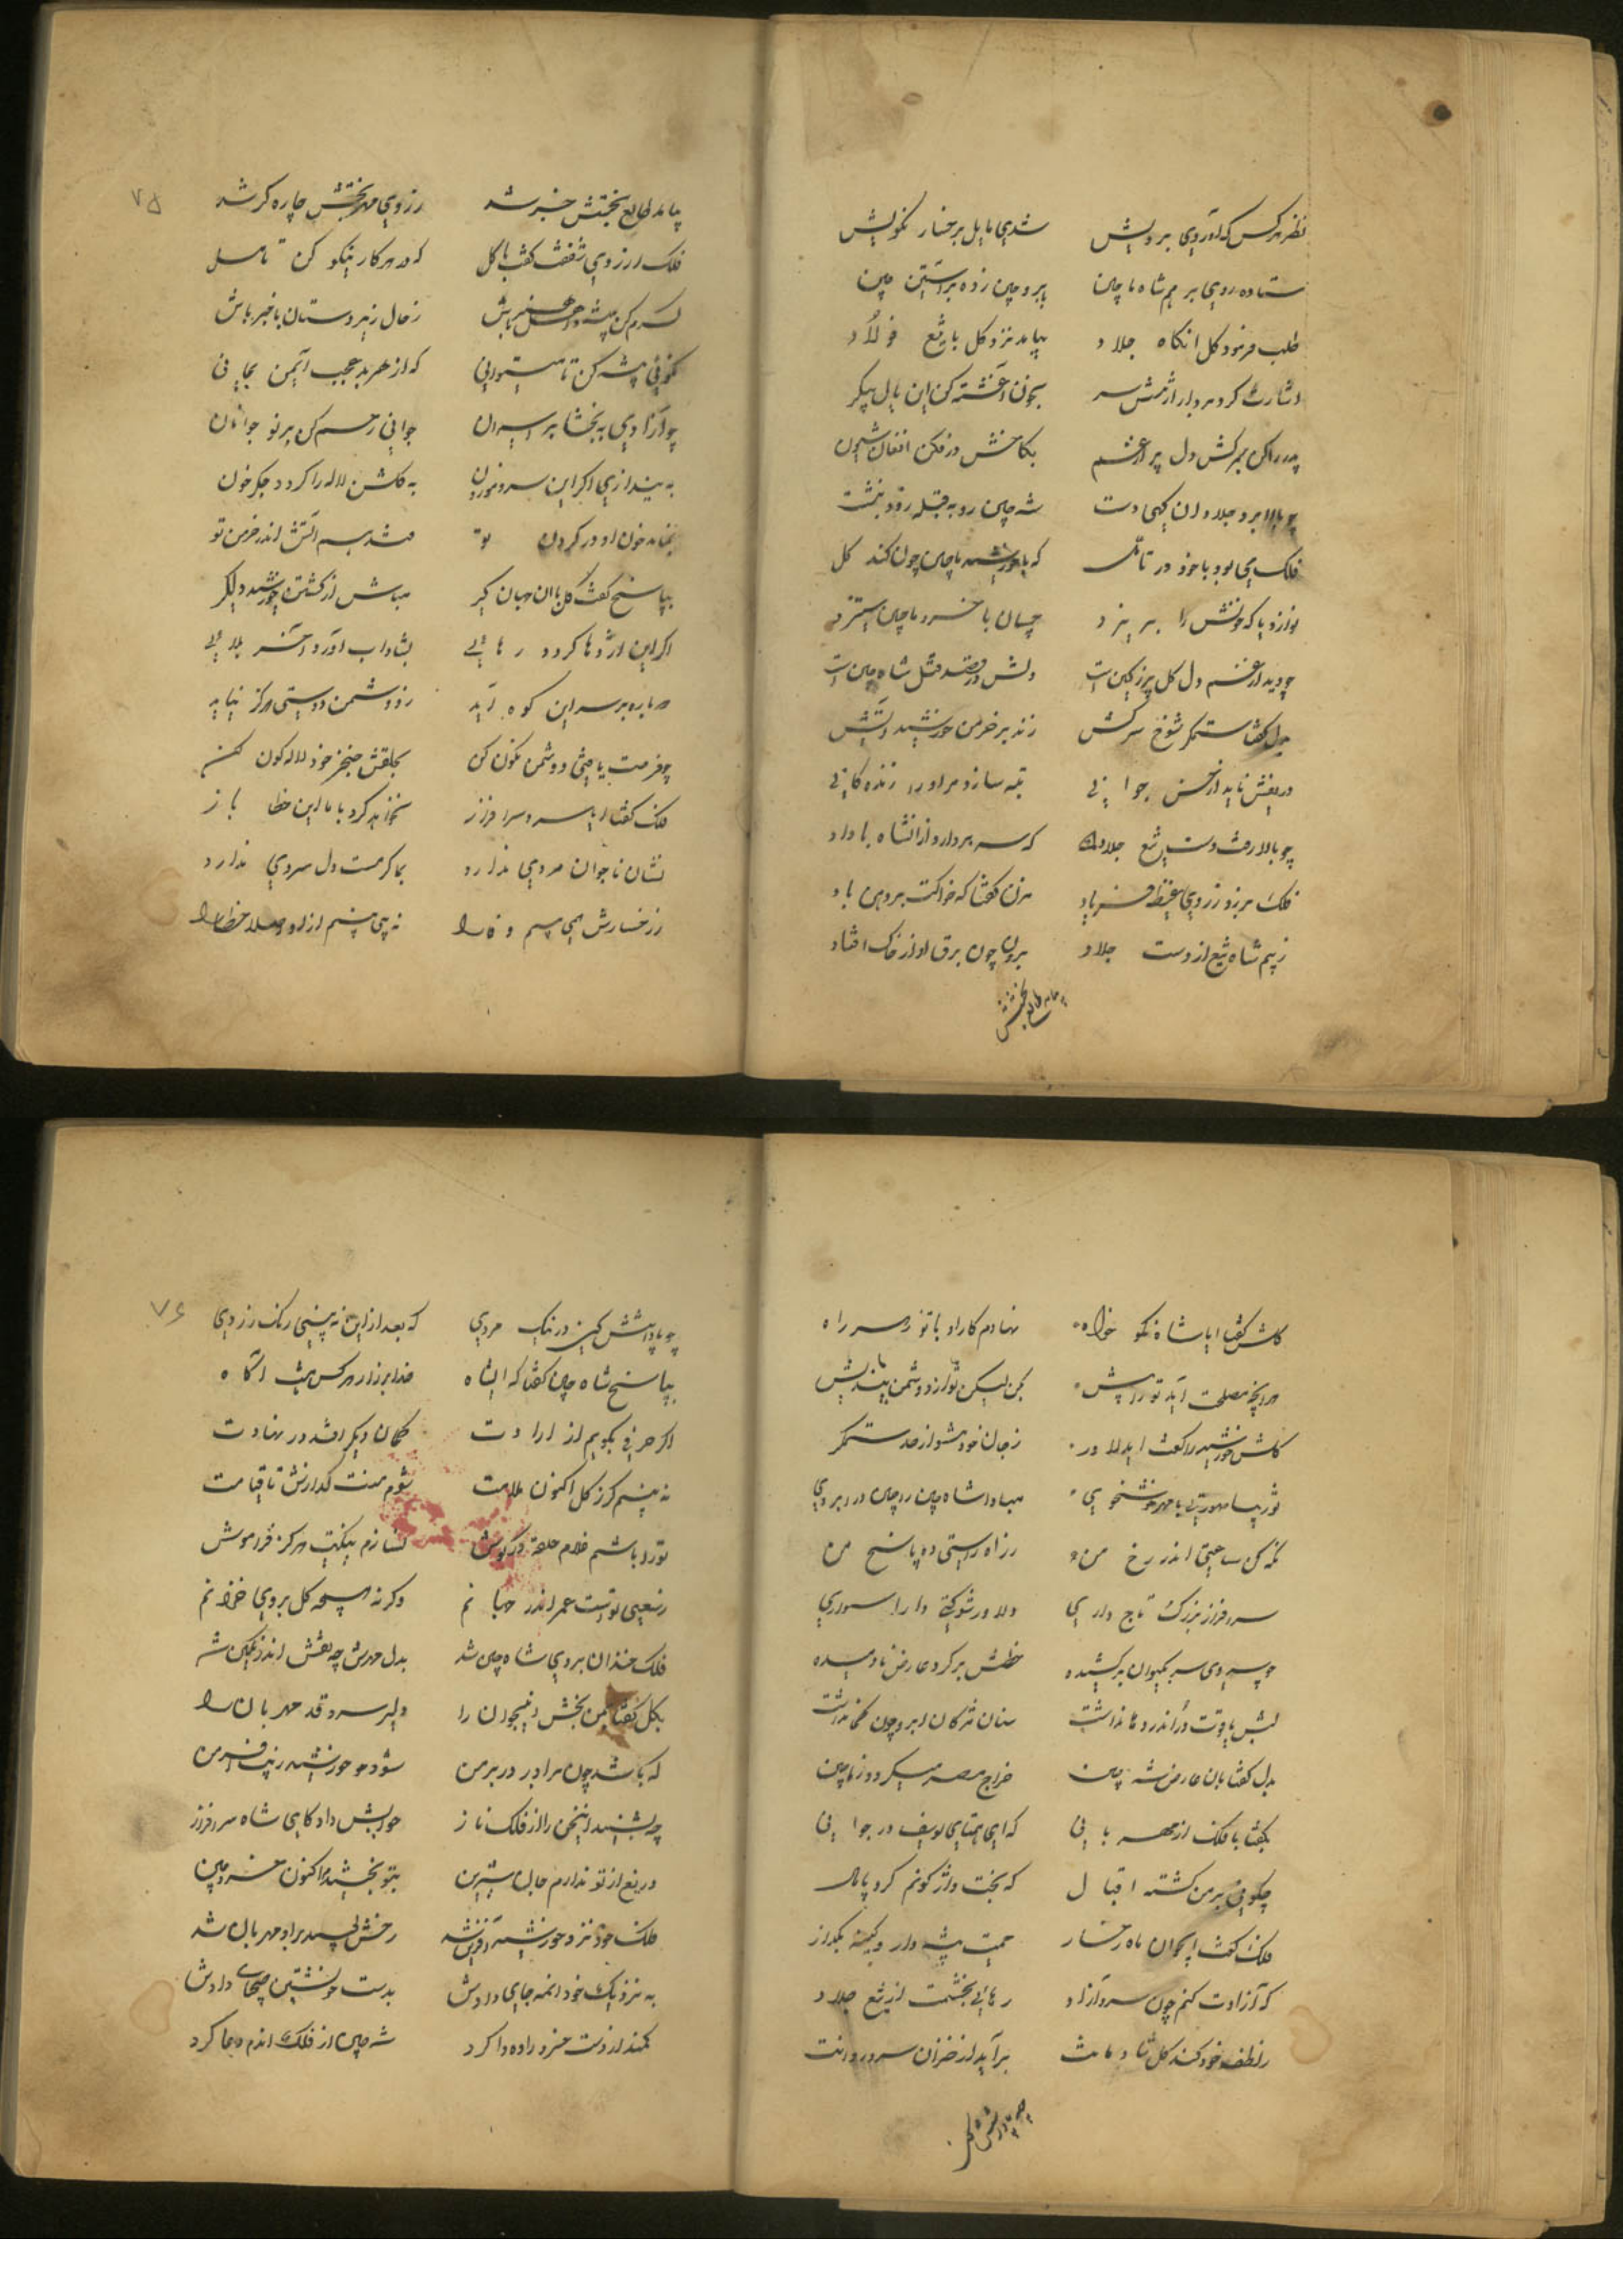 نظر هرکس که آوردی برویش شدی مایل برخسار نکویش
ستاده روی بر هم شاه ماچین بابرو چین زده بر آستین چین
طلب فرمود کل انکاه جلاد بیامد نزد کل با تیغ فولاد
اشارت کرد بردار از تنش سر بخون آغشته کن این یال پیکر
پدر را کن بمرکش دل پر از غم بکاخش در فکن افغان
چو بالا برد جلاد ان یکی دست شه چین رو به قبله زود بنشست
فلک می بود با خود در تامل که با خورشید ماچین چون کند کل
نوازد یا که خونش را بریزد چسان با خسرو ماچین ستیزد
چو دید از غم دل کل پر ز کین است دلش در قصد قتل شاه چین است
بدل کفتا ستمکر شوخ سرکش زند بر خرمن خورشید آتش
دریغش ناید از حسن جوانی تبه سازد مر او را زندکانی
چو بالا رفت دست تیغ جلاد که سر بردارد از انشاه با داد
فلک بر زد ز روی غیظ فریاد بزن کفتا که خاکت بر دهن باد
ز بیم شاه تیغ از دست جلاد برون چون برق او از خاک افتاد
بیامد طالع بختش
۷۵
بیامد طالع بختش خبر شد ز روی مهر بختش چاره کر شد
فلک از روی شفقت کفت با کل که در هر کار نیکو کن تامل
کرم کن پیشه و اهل هنر باش ز حال زیردستان با خبر باش
نکوئی پیشه کن تا میتوانی که از هر بد عجب ایمن بمانی
چو آزادی به بخشا بر اسیران جوانی رحم کن بر نو جوانان
به بندازی اکر این سرو موزون به کلشن لاله را کردد جکر خون
بماند خون او در کردن تو فتد بس آتش اندر خرمن تو
بپاسخ کفت کل با ان جهان کیر مباش از کشتن خورشید دلکیر
اکر این اژدها کردد رهائی بشاداب آورد آخر بلائی
دوباره بر سر این کوه آید ز دشمن دوستی هرکز نیاید
چو فرصت یافتی دشمن نکون کن بحلقش خنجر خود لاله کون کن
فلک کفتا ایا سرو سرافراز نخواهد کرد با ما این خطا باز
نشان ناجوان مردی ندارد بما کرمست دل سردی ندارد
ز رخسارش همی بینم وفا را نه می بینم از او اصلا خطا را
کلش کفتا ایا شاه نکو خواه نهادم کار او با تو در این راه
هرانچه مصلحت آید تو را پیش بکن لیکن تو از دشمن بیندیش
کلش خورشید را کفت ای دلاور ز جان خود مشو از حد ستمکر
تو زیبا صورتی با مهر و خوشخوی مباد انشاه چین در ابروی
نکه کن ساعتی اندر رخ من ز راه راستی ده پاسخ من
سرفراز بزرک تاج داری دلاور شوکتی دارا سواری
چو سروی سر بکیوان برکشیده خطش بر کرد عارض نا دمیده
لبش یاقوت در اندر دهان داشت سنان مژکان ابرو چون کمان داشت
بدل کفتا بان عارض شه چین خراج مصر میکیرد ز ماچین
بکفتا با فلک از مهربانی که ای همتای یوسف در جوانی
چکویی بر من کشته اقبال که بخت واژکونم کرد پامال
فلک کفت ای جوان ماه رخسار محبت پیشه دار و کینه بکذار
که آزادت کنم چون سرو آزاد رهائی بخشمت از تیغ جلاد
ز لطف خود کند کل شاد مانت برآید از خزان سرو روانت
چو پاداشش کنی
۷۶
چو پاداشش کنی در نیک مردی که بعد از این نه بینی رنک زردی
بپاسخ شاه چین کفتا که ایشاه خدا بر راز هر کس هست آکاه
اکر حرفی بکویم از ارادت کمان دیکر افتد در نهادت
نه بینم کر ز کل اکنون ملامت شوم منت کذارش تا قیامت
تو را باشم غلام حلقه در کوش نسازم نیکیت هرکز فراموش
ز سعی توست عمر اندر جهانم وکر نه پنجه کل بروی خزانم
فلک خندان بروی شاه چین شد بدل مهرش چو نقش اندر نکین شد
بکل کفتا بمن بخش این جوان را دلیر سرو قد مهربان را
که باشد چون برادر در بر من شود مر خورشید زیب افسر من
چو بشنید این سخن را از فلک ناز جوابش داد کای شاه سرافراز
دریغ از تو ندارم جان شیرین بتو بخشیدم اکنون خسرو چین
فلک خود نزد خورشید رخش بوسید بر او مهربان شد
به نزدیک خود انمه جای دادش بدست خویشتن دادش
کمند از دست خسرو زاده وا کرد شه چین از فلک اندم دعا کرد